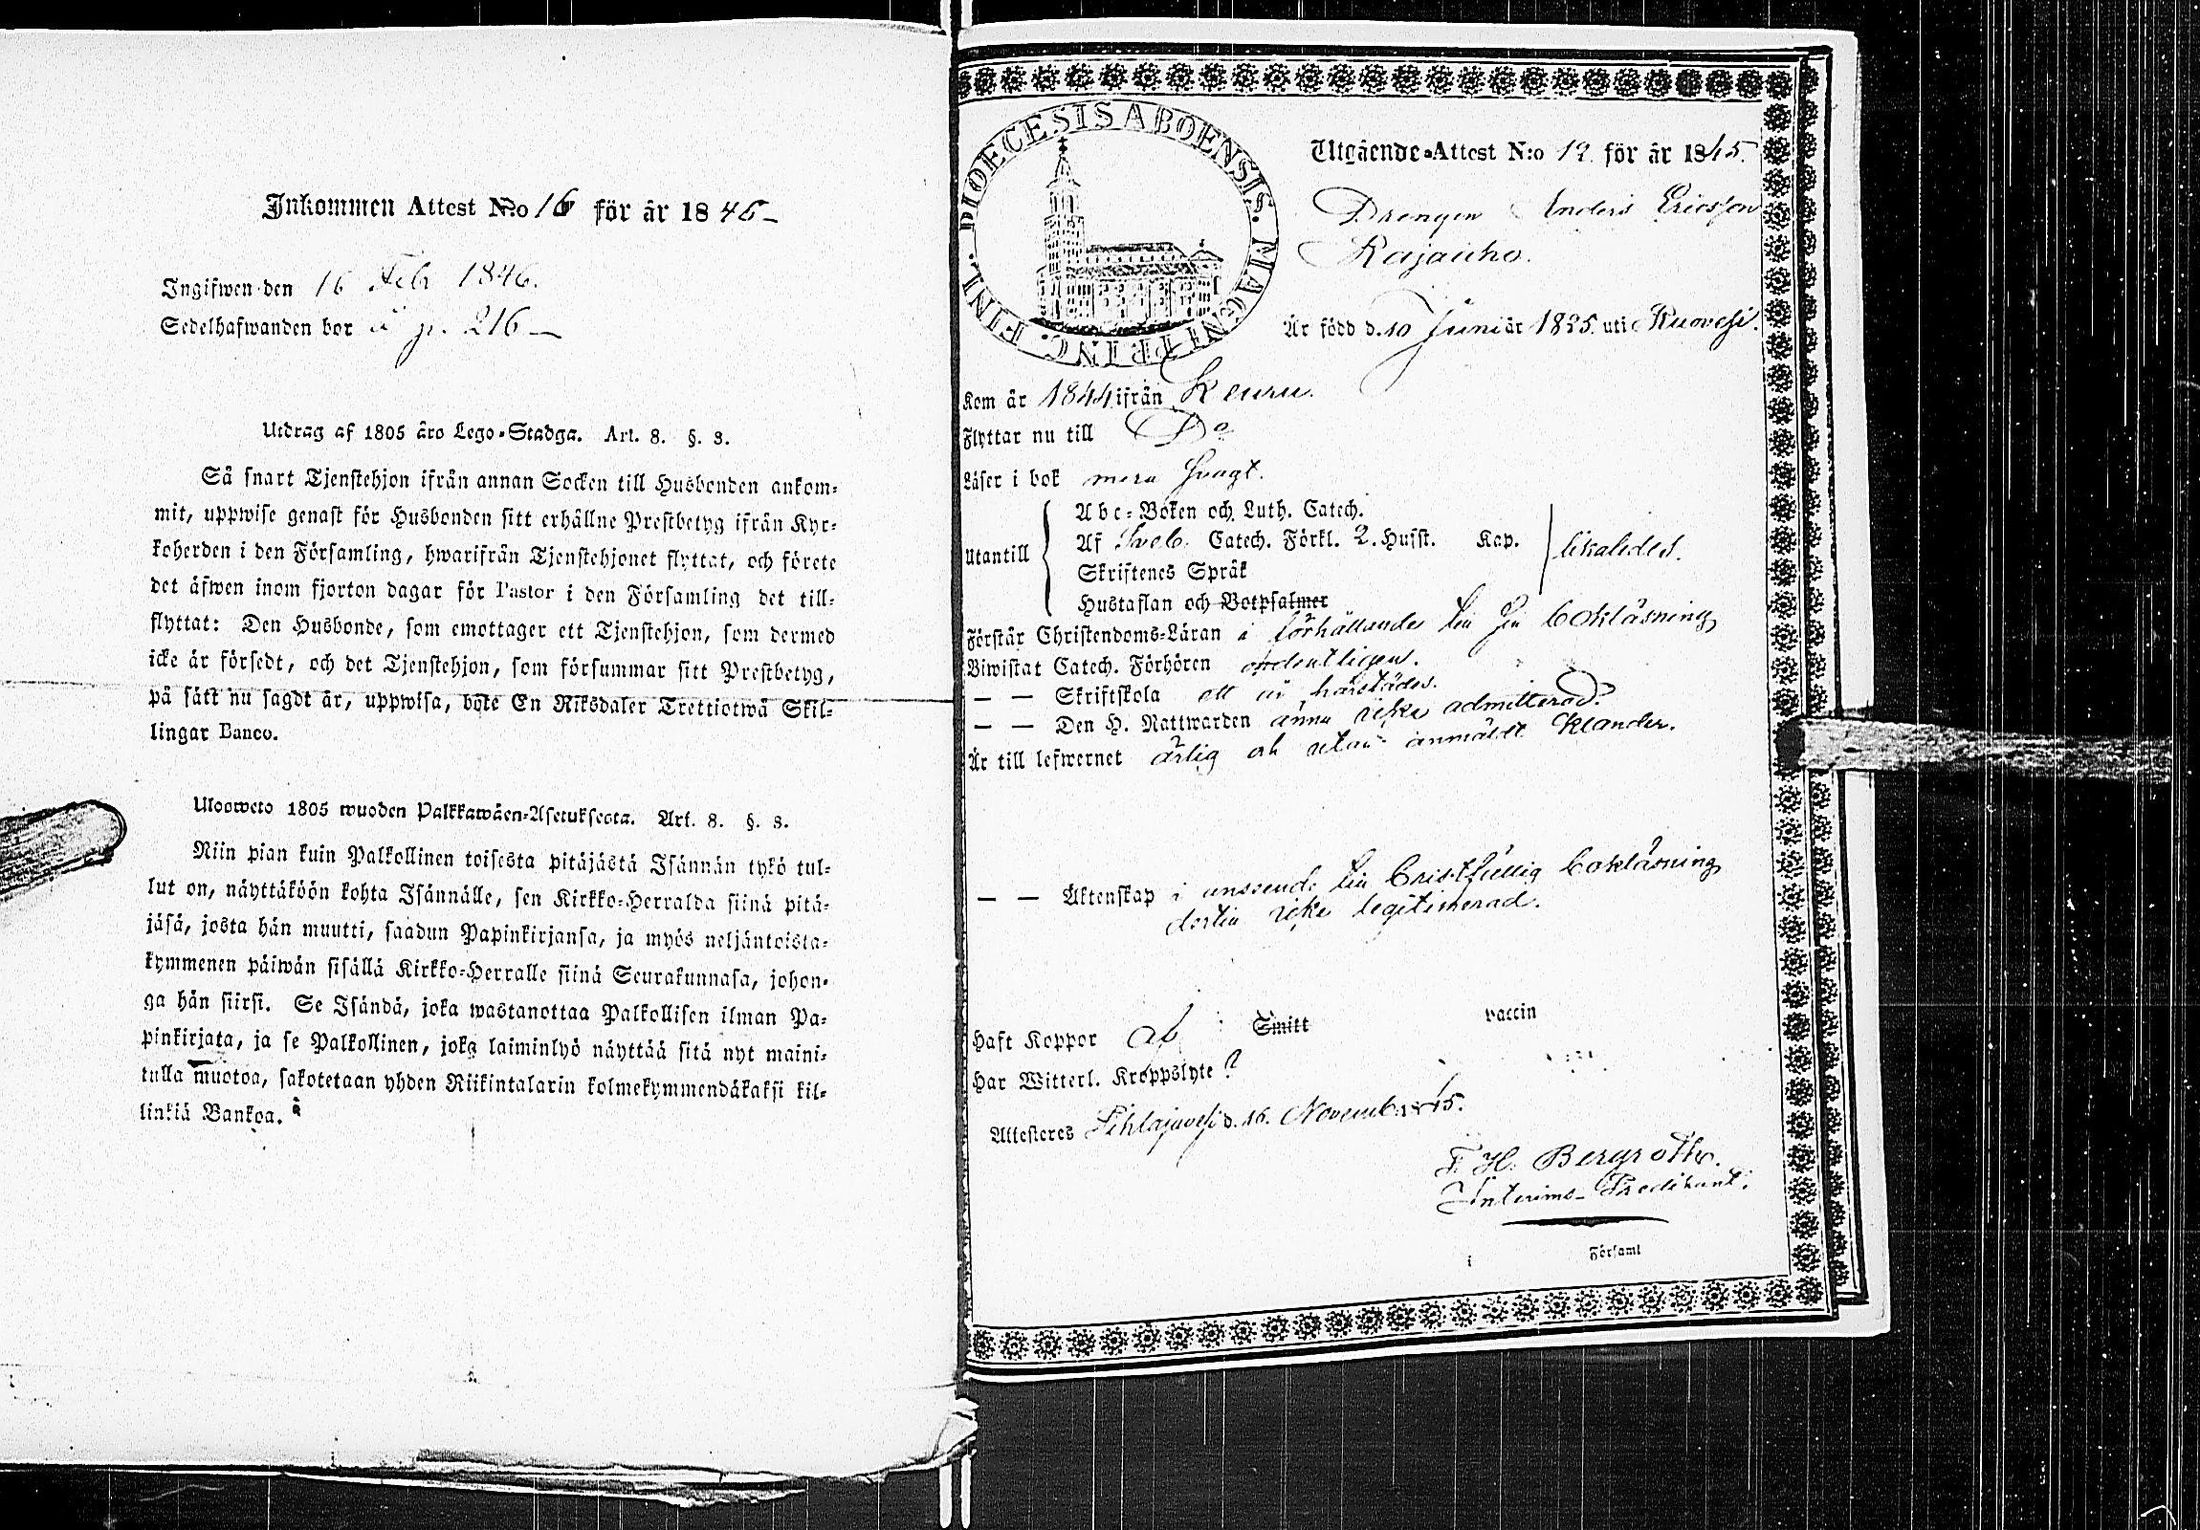 Inkommen Attest N:o 16 för år 1846 -
Ingifwen den 16 Febr 1846.
Sedelhafwanden bor å p. 216 -
Utdrag af 1805 års Lego-Stadga. Art. 8. §. 3.
Så snart Tjenstehjon ifrån annan Socken till Husbonden ankom-
mit, uppwise genast för Husbonden sitt erhållne Prestbetyg ifrån Kyr-
koherden i den Församling, hwarifrån Tjenstehjonet flyttat, och förete
det äfwen inom fjorton dagar för Pastor i den Församling det till-
flyttat: Den Husbonde, som emottager ett Tjenstehjon, som dermed
icke är försedt, och det Tjenstehjon, som försummar sitt Prestbetyg,
på sätt nu sagdt är, uppwisa, böte En Riksdaler Trettiotwå Skil-
lingar Banco.
Ulosweto 1805 wuoden Palkkawäen-Asetuksesta. Art. 8. §. 3.
Niin pian kuin Palkollinen toisesta pitäjästä Isännän tykö tul-
lut on, näyttäköön kohta Isännälle, sen Kirkko-Herralda siinä pitä-
jäsä, josta hän muutti, saadun Papinkirjansa, ja myös neljäntoista-
kymmenen päiwän sisällä Kirkko-Herralle siinä Seurakunnasa, johon-
ga hän siirsi. Se Isändä, joka wastanottaa Palkollisen ilman Pa-
pinkirjata, ja se Palkollinen, joka laiminlyö näyttää sitä nyt maini-
tulla muotoa, sakotetaan yhden Riikintalarin kolmekymmendäkaksi kil-
linkiä Bankoa.
DIOECESIS ABOENSIS. MAGNI PRINC. FINL.
Utgående-Attest N:o 12. för år 1845.
Drengen Anders Ericsson
Rajauho.
Är född d. 10 Juni år 1825. uti Ruovesi.
Kom år 1844 ifrån Keuru.
Flyttar nu till Do
Läser i bok mera svagt.
Utantill
Abc-Boken och Luth. Catech.
Af Sveb. Catech. Förkl. 2. Husst. Kap.
Skriftenes Språk
Hustaflan och Botpsalmer
likaledes.
Förstår Christendoms-Läran i förhållande till sin bokläsning
Biwistat Catech. Förhören ordentligen.
— — Skriftskola ett år härstädes.
— — Den H. Nattwarden ännu icke admitterad.
Är till lefwernet ärlig och utan anmäldt klander.
— — Äktenskap i anseende till bristfällig bokläsning
dertill icke legitimerad.
Haft Koppor Smitt vaccin
Har Witterl. Kroppslyte ?
Attesteres Pihlajavesi d. 16. Novemb. 1845.
F. H. Bergroth.
Interims-Predikant.
Församl